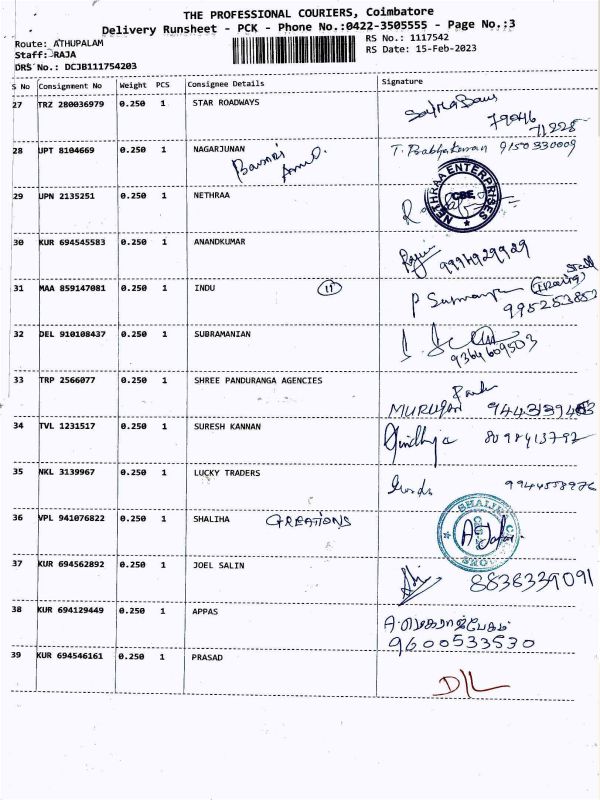 THE PROFESSIONAL COURIERS, Coimbatore
Delivery Runsheet - PCK - Phone No.:0422-3505555 - Page No.:3
Route: ATHUPALAM
RS No.: 1117542
Staff: RAJA
RS Date: 15-Feb-2023
DRS No.: DCJB111754203
S No Consignment No Weight PCS Consignee Details Signature
27 TRZ 280036979 0.250 1 STAR ROADWAYS
79046
71228
28 JPT 8104669 0.250 1 NAGARJUNAN T. Prabhakaran 9150330009
29 UPN 2135251 0.250 1 NETHRAA
NETHRAA ENTERPRISES
CBE
30 KUR 694545583 0.250 1 ANANDKUMAR
9994929929
31 MAA 859147081 0.250 1 INDU 11
32 DEL 910108437 0.250 1 SUBRAMANIAN
9364609503
33 TRP 2566077 0.250 1 SHREE PANDURANGA AGENCIES
MURUGAN
34 TVL 1231517 0.250 1 SURESH KANNAN
8098413792
35 NKL 3139967 0.250 1 LUCKY TRADERS
36 VPL 941076822 0.250 1 SHALIHA CREATIONS
37 KUR 694562892 0.250 1 JOEL SALIN
8838339091
38 KUR 694129449 0.250 1 APPAS
9600533530
39 KUR 694546161 0.250 1 PRASAD
D/L